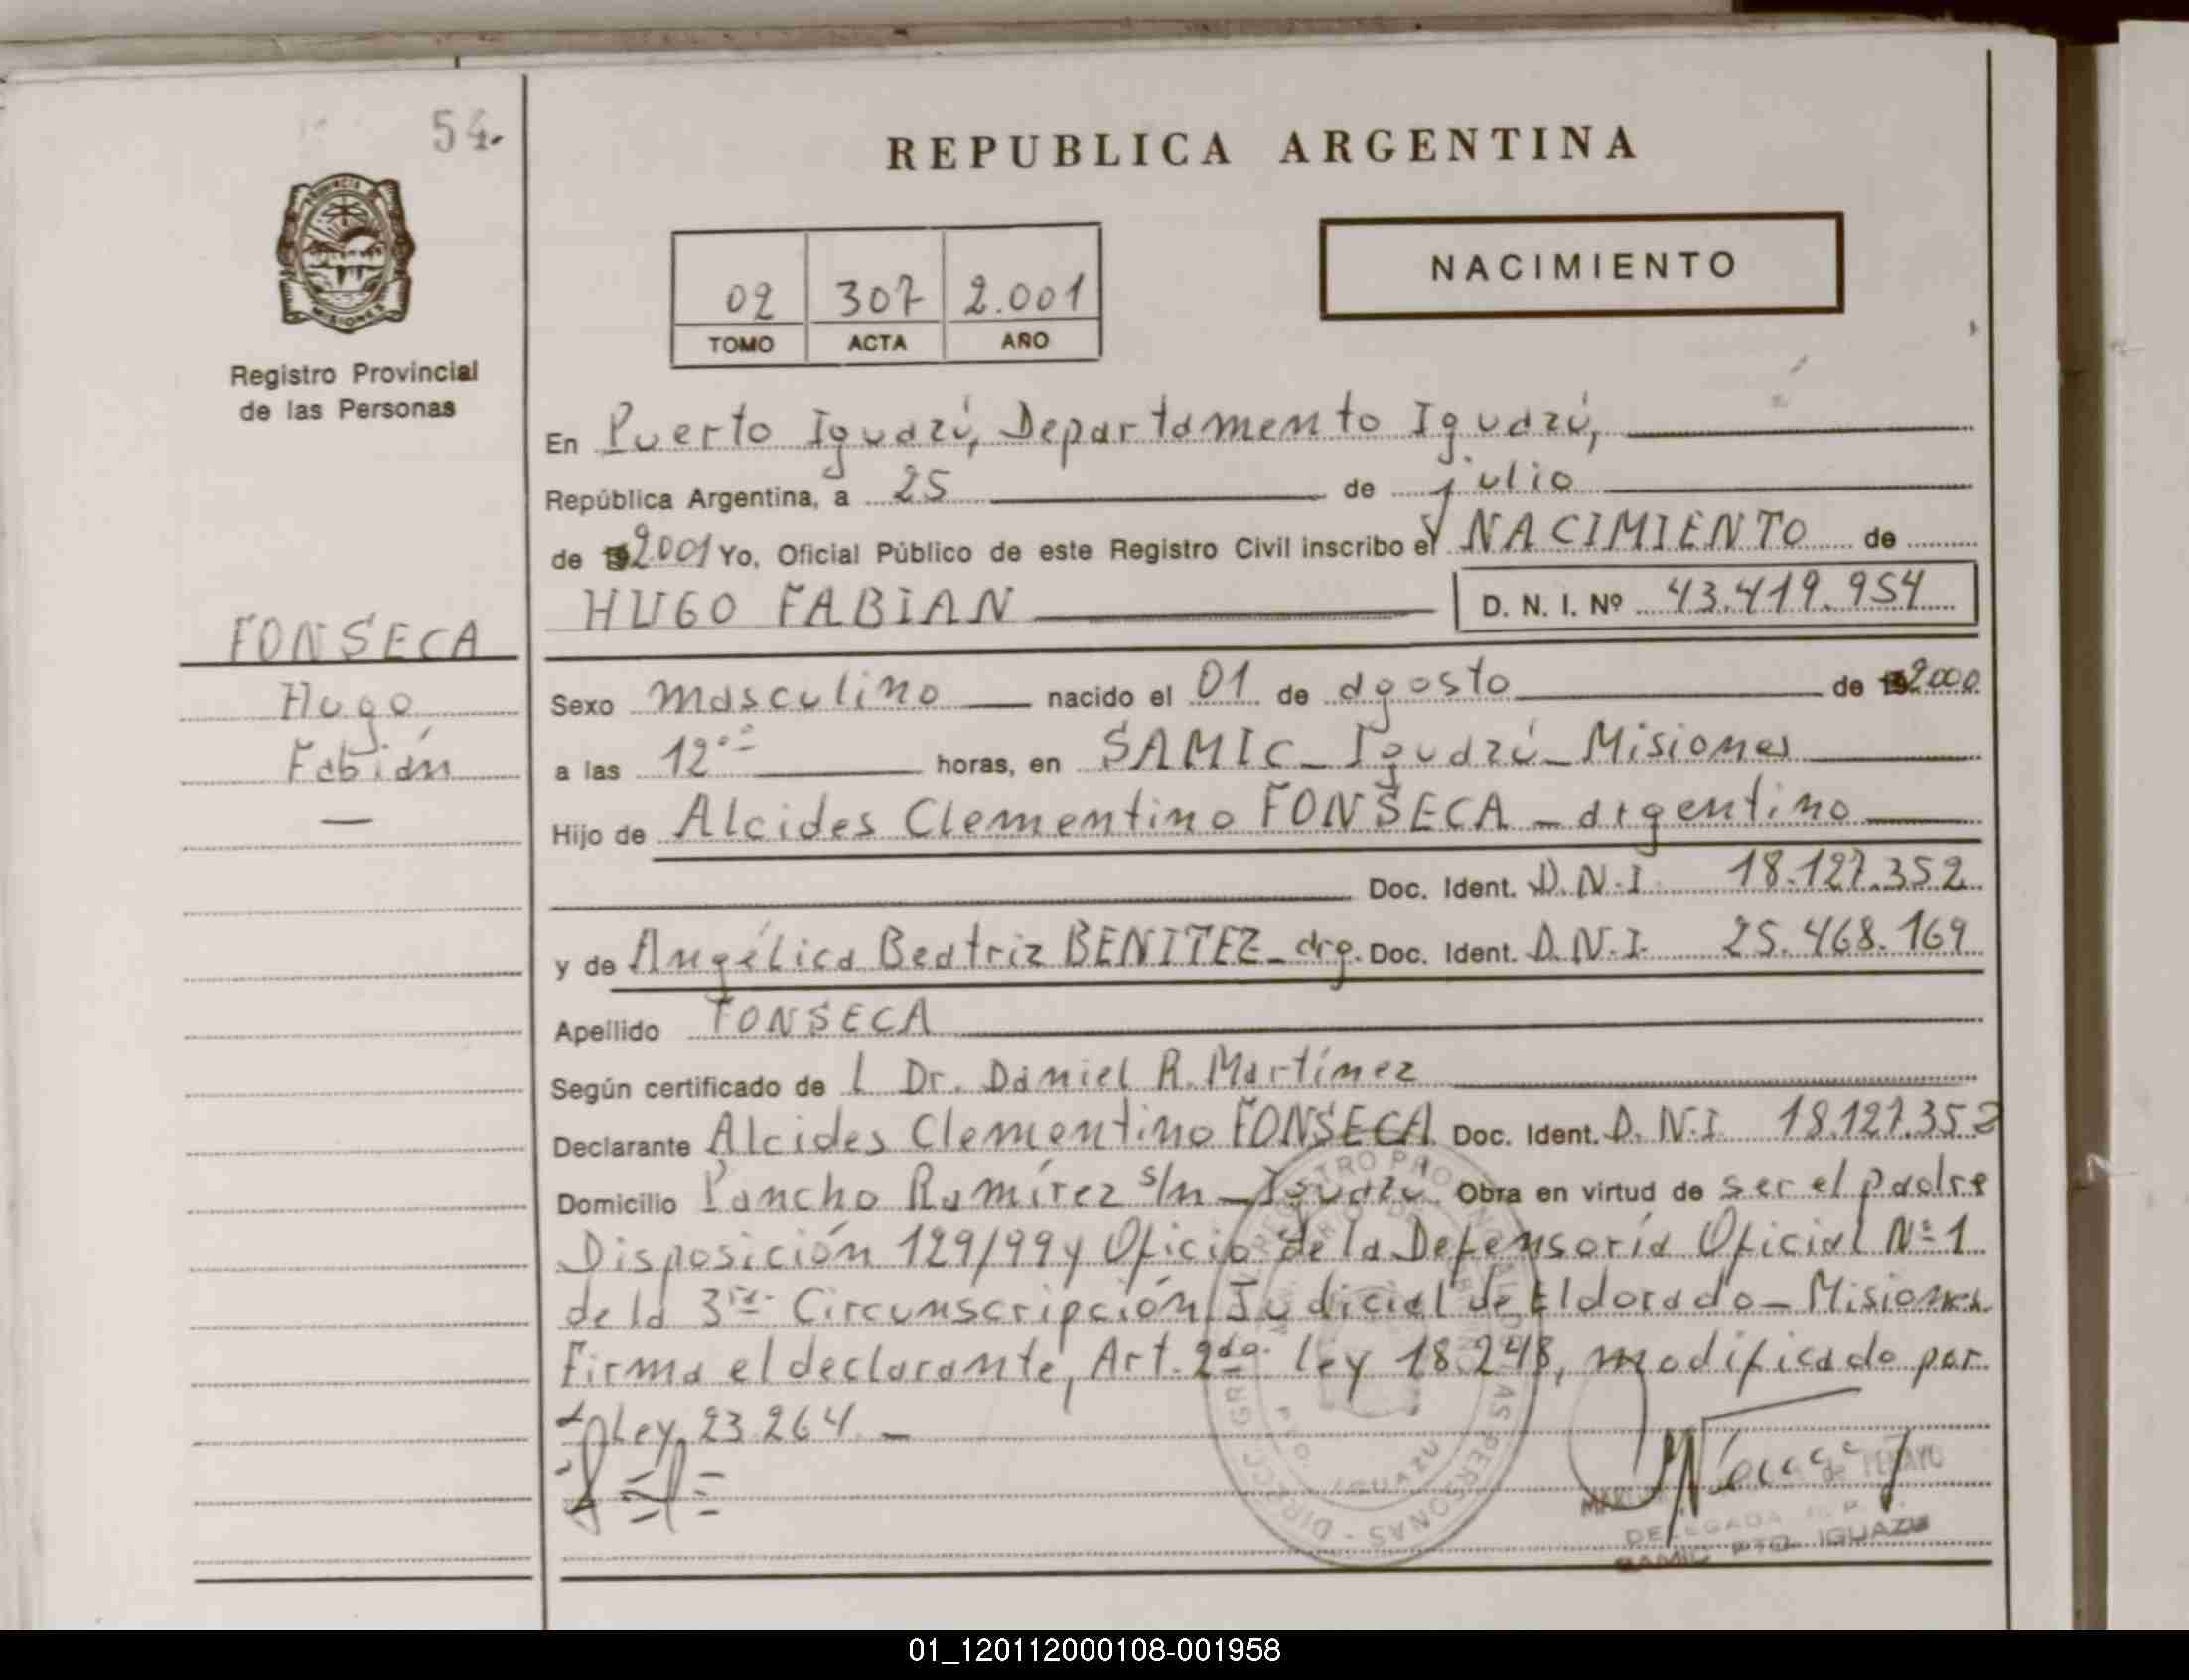 54.
REPUBLICA ARGENTINA
PROVINCIA DE
MISIONES
02 307 2.001
TOMO ACTA AÑO
NACIMIENTO
Registro Provincial
de las Personas
En Puerto Iguazú, Departamento Iguazú,
República Argentina, a 25 de julio
de 2001 Yo, Oficial Público de este Registro Civil inscribo el NACIMIENTO de
HUGO FABIAN D. N. I. Nº 43.419.954
FONSECA
Hugo
Fabián
Sexo masculino nacido el 01 de agosto de 2000
a las 12 horas, en SAMIC - Iguazú - Misiones
Hijo de Alcides Clementino FONSECA - argentino
Doc. Ident. D.N.I. 18.127.352
y de Angélica Beatriz BENITEZ - arg. Doc. Ident. D.N.I. 25.468.169
Apellido FONSECA
Según certificado de l Dr. Daniel R. Martínez
Declarante Alcides Clementino FONSECA Doc. Ident. D.N.I. 18.127.352
Domicilio Pancho Ramírez s/n - Iguazú Obra en virtud de ser el padre
Disposición 129/99 y Oficio de la Defensoría Oficial Nº 1
de la 3ra. Circunscripción Judicial de Eldorado - Misiones.
Firma el declarante, Art. 2da. ley 18.248, modificado por
Ley 23.264. -
DELEGADA
SAMIC PTO. IGUAZU
01_120112000108-001958